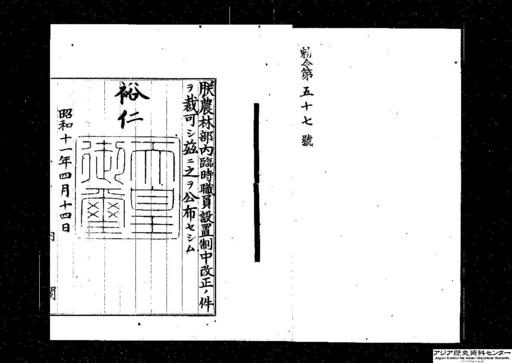 勅令第五十七號
朕農林部內臨時職員設置制中改正ノ件
ヲ裁可シ茲ニ之ヲ公布セシム
裕仁
天皇御璽
昭和十一年四月十四日
內閣
アジア歴史資料センター
Japan Center for Asian Historical Records